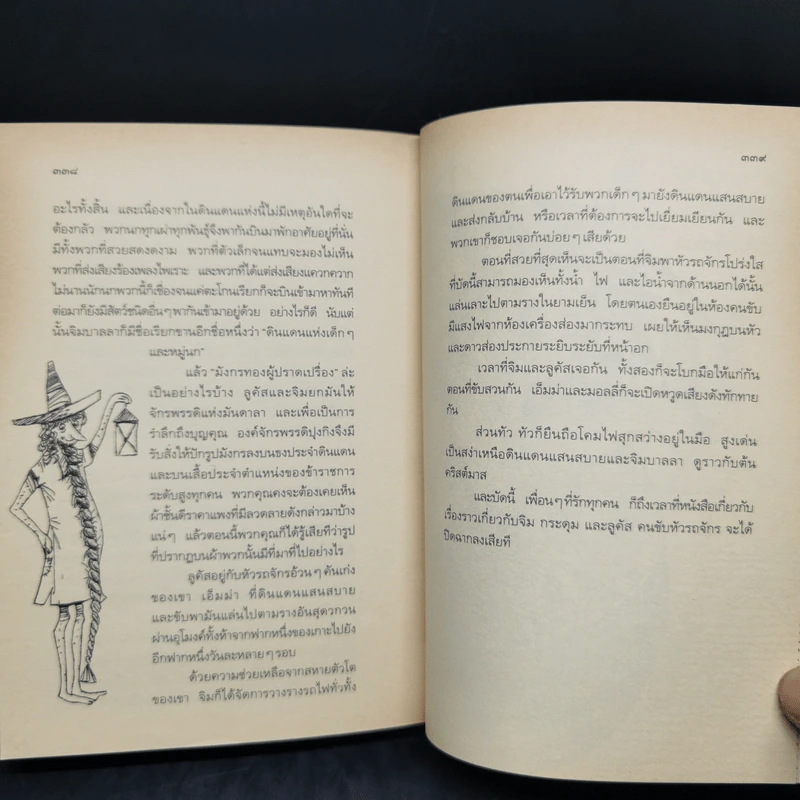 ๓๓๘
อะไรทั้งสิ้น และเนื่องจากในดินแดนแห่งนี้ไม่มีเหตุอันใดที่จะ
ต้องกลัว พวกนกทุกเผ่าทุกพันธุ์จึงพากันบินมาพักอาศัยอยู่ที่นั่น
มีทั้งพวกที่สวยสดงดงาม พวกที่ตัวเล็กจนแทบจะมองไม่เห็น
พวกที่ส่งเสียงร้องเพลงไพเราะ และพวกที่ได้แต่ส่งเสียงแควกควาก
ไม่นานนักนกพวกนี้ก็เชื่องจนแค่ตะโกนเรียกก็จะบินเข้ามาหาทันที
ต่อมาก็ยังมีสัตว์ชนิดอื่นๆ พากันเข้ามาอยู่ด้วย อย่างไรก็ดี นับแต่
นั้นจิมบาลลาก็มีชื่อเรียกขานอีกชื่อหนึ่งว่า “ดินแดนแห่งเด็กๆ
และหมู่นก”
แล้ว “มังกรทองผู้ปราดเปรื่อง” ล่ะ
เป็นอย่างไรบ้าง ลูคัสและจิมยกมันให้
จักรพรรดิแห่งมันดาลา และเพื่อเป็นการ
รำลึกถึงบุญคุณ องค์จักรพรรดิปุงกิงจึงมี
รับสั่งให้ปักรูปมังกรลงบนธงประจำดินแดน
และบนเสื้อประจำตำแหน่งของข้าราชการ
ระดับสูงทุกคน พวกคุณคงจะต้องเคยเห็น
ผ้าชั้นดีราคาแพงที่มีลวดลายดังกล่าวมาบ้าง
แน่ๆ แล้วตอนนี้พวกคุณก็ได้รู้เสียทีว่ารูป
ที่ปรากฏบนผ้าพวกนั้นมีที่มาที่ไปอย่างไร
ลูคัสอยู่กับหัวรถจักรอ้วนๆ คันเก่ง
ของเขา เอ็มม่า ที่ดินแดนแสนสบาย
และขับพามันแล่นไปตามรางอันสุดวกวน
ผ่านอุโมงค์ทั้งห้าจากฟากหนึ่งของเกาะไปยัง
อีกฟากหนึ่งวันละหลายๆ รอบ
ด้วยความช่วยเหลือจากสหายตัวโต
ของเขา จิมก็ได้จัดการวางรางรถไฟทั่วทั้ง
๓๓๙
ดินแดนของตนเพื่อเอาไว้รับพวกเด็กๆ มายังดินแดนแสนสบาย
และส่งกลับบ้าน หรือเวลาที่ต้องการจะไปเยี่ยมเยียนกัน และ
พวกเขาก็ชอบเจอกันบ่อยๆ เสียด้วย
ตอนที่สวยที่สุดเห็นจะเป็นตอนที่จิมพาหัวรถจักรโปร่งใส
ที่บัดนี้สามารถมองเห็นทั้งน้ำ ไฟ และไอน้ำจากด้านนอกได้นั้น
แล่นเลาะไปตามรางในยามเย็น โดยตนเองยืนอยู่ในห้องคนขับ
มีแสงไฟจากห้องเครื่องส่องมากระทบ เผยให้เห็นมงกุฎบนหัว
และดาวส่องประกายระยิบระยับที่หน้าอก
เวลาที่จิมและลูคัสเจอกัน ทั้งสองก็จะโบกมือให้แก่กัน
ตอนที่ขับสวนกัน เอ็มม่าและมอลลี่ก็จะเปิดหวูดเสียงดังทักทาย
กัน
ส่วนทัว ทัวก็ยืนถือโคมไฟสุกสว่างอยู่ในมือ สูงเด่น
เป็นสง่าเหนือดินแดนแสนสบายและจิมบาลลา ดูราวกับต้น
คริสต์มาส
และบัดนี้ เพื่อนๆ ที่รักทุกคน ก็ถึงเวลาที่หนังสือเกี่ยวกับ
เรื่องราวเกี่ยวกับจิม กระดุม และลูคัส คนขับหัวรถจักร จะได้
ปิดฉากลงเสียที